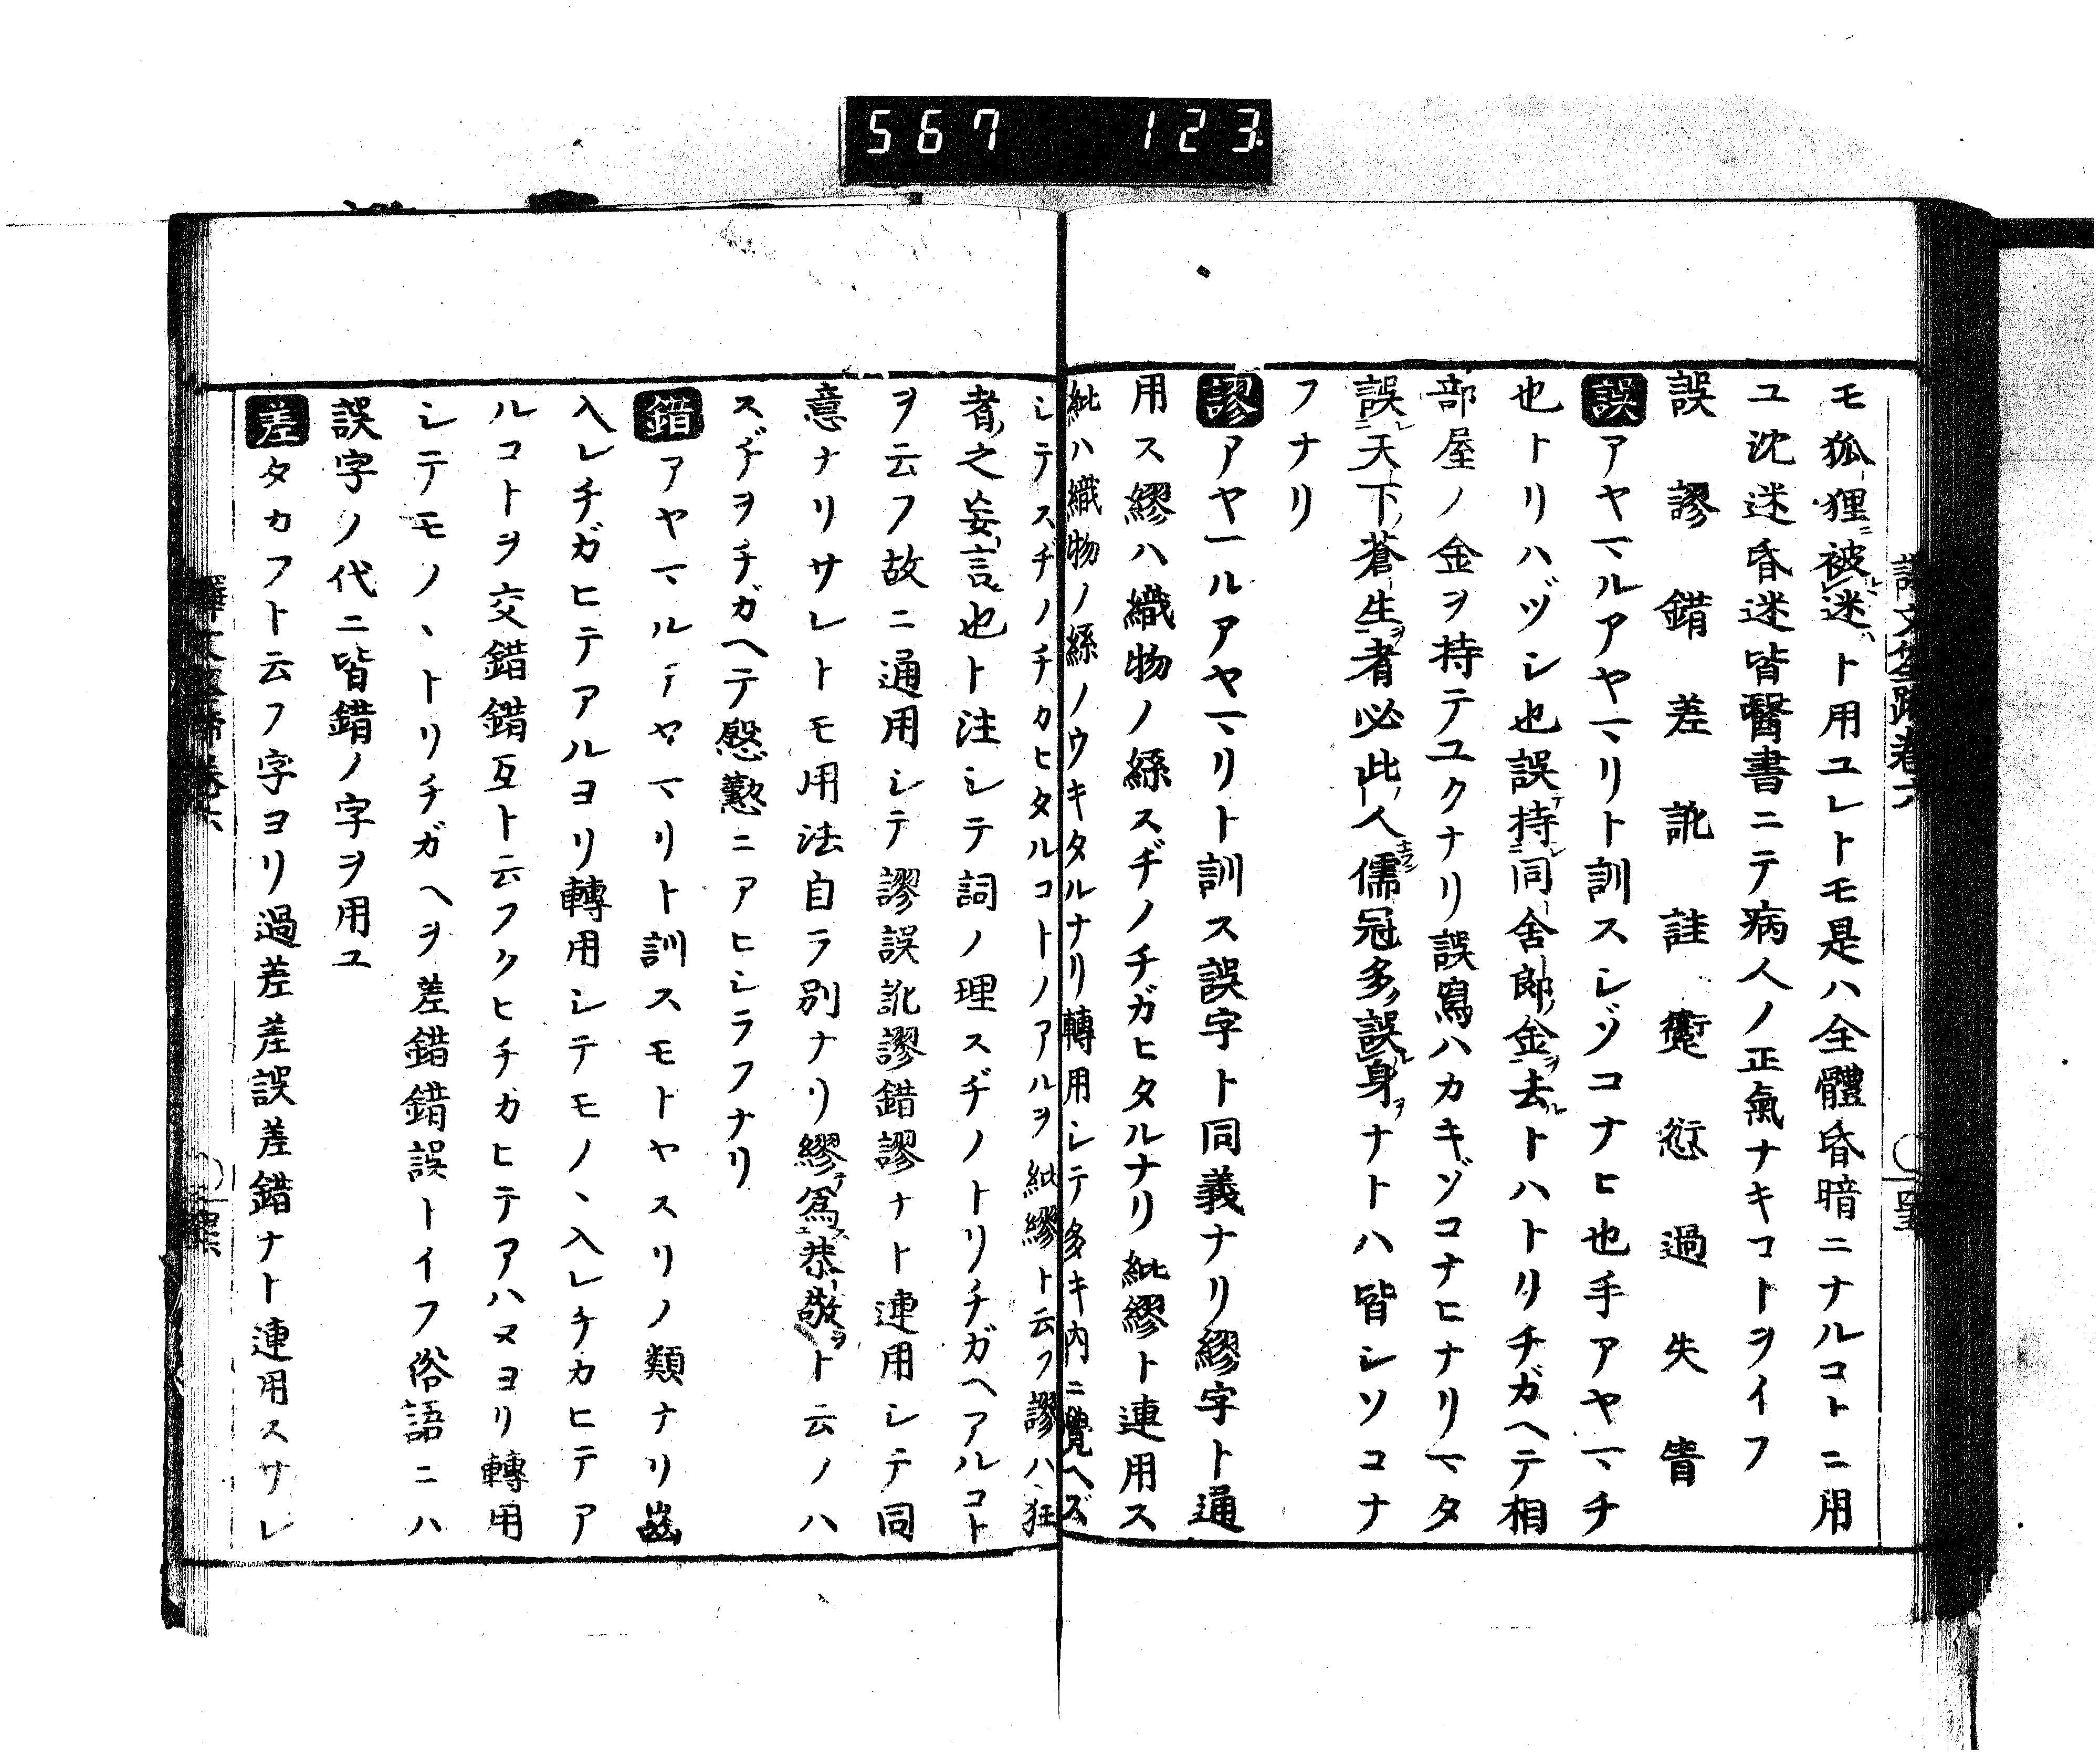 567 123
モ狐狸被迷ト用ユレトモ是ハ全體昏暗ニナルコトニ用
ユ沈迷昏迷皆醫書ニテ病人ノ正氣ナキコトヲイフ
誤 謬 錯 差 訛 詿 躗 愆 過 失 眚
誤アヤマルアヤマリト訓スレゾコナヒ也手アヤマチ
也トリハヅシ也誤持同舍郎金去トハトリチガヘテ相
部屋ノ金ヲ持テユクナリ誤寫ハカキゾコナヒナリマタ
誤天下蒼生者必此人儒冠多誤身ナトハ皆シソコナ
フナリ
謬アヤマルアヤマリト訓ス誤字ト同義ナリ繆字ト通
用ス繆ハ織物ノ絲スヂノチガヒタルナリ紕繆ト連用ス
紕ハ織物ノ絲ノウキタルナリ轉用シテ多キ内ニ覺ヘズ
シテスヂノチカヒタルコトノアルヲ紕繆ト云フ謬ハ狂
者之妄言也ト注シテ詞ノ理スヂノトリチガヘアルコト
ヲ云フ故ニ通用シテ謬誤訛謬錯謬ナト連用シテ同
意ナリサレトモ用法自ラ別ナリ繆爲恭敬ト云ノハ
スヂヲチガヘテ慇懃ニアヒシラフナリ
錯アヤマルアヤマリト訓スモトヤスリノ類ナリ齒
入レチガヒテアルヨリ轉用シテモノヽ入レチカヒテア
ルコトヲ交錯錯互ト云フクヒチカヒテアハヌヨリ轉用
シテモノヽトリチガヘヲ差錯錯誤トイフ俗語ニハ
誤字ノ代ニ皆錯ノ字ヲ用ユ
差タカフト云フ字ヨリ過差差誤差錯ナト連用スサレ